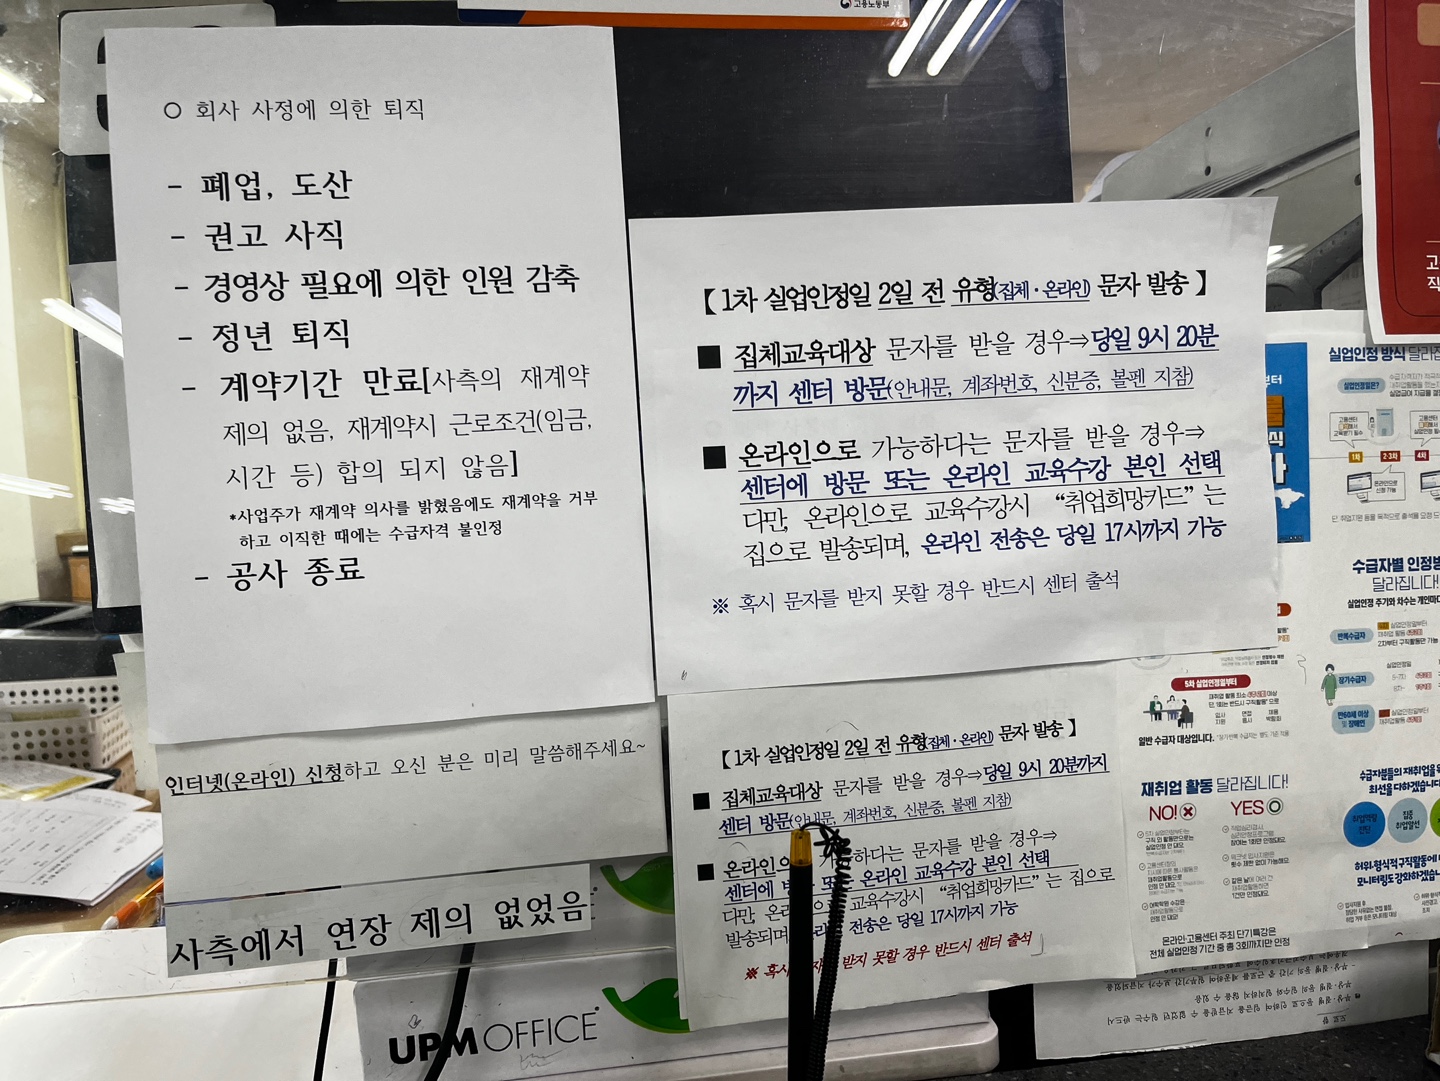 고용노동부
○ 회사 사정에 의한 퇴직
- 폐업, 도산
- 권고 사직
- 경영상 필요에 의한 인원 감축
- 정년 퇴직
- 계약기간 만료[사측의 재계약
제의 없음, 재계약시 근로조건(임금,
시간 등) 합의 되지 않음]
*사업주가 재계약 의사를 밝혔음에도 재계약을 거부
하고 이직한 때에는 수급자격 불인정
- 공사 종료
인터넷(온라인) 신청하고 오신 분은 미리 말씀해주세요~
사측에서 연장 제의 없었음
UPM OFFICE
【 1차 실업인정일 2일 전 유형(집체·온라인) 문자 발송 】
■ 집체교육대상 문자를 받을 경우⇒당일 9시 20분
까지 센터 방문(안내문, 계좌번호, 신분증, 볼펜 지참)
■ 온라인으로 가능하다는 문자를 받을 경우⇒
센터에 방문 또는 온라인 교육수강 본인 선택
다만, 온라인으로 교육수강시 “취업희망카드” 는
집으로 발송되며, 온라인 전송은 당일 17시까지 가능
※ 혹시 문자를 받지 못할 경우 반드시 센터 출석
【 1차 실업인정일 2일 전 유형(집체·온라인) 문자 발송 】
■ 집체교육대상 문자를 받을 경우⇒당일 9시 20분까지
센터 방문(안내문, 계좌번호, 신분증, 볼펜 지참)
■ 온라인으 하다는 문자를 받을 경우⇒
센터에 또는 온라인 교육수강 본인 선택
다만, 온라 교육수강시 “취업희망카드” 는 집으로
발송되며 전송은 당일 17시까지 가능
※ 혹시 받지 못할 경우 반드시 센터 출석
실업인정 방식 달라집
실업인정일은?
1차 2·3차 4차
수급자별 인정방
달라집니다!
반복수급자
2차부터 구직활동만 가능
장기수급자
만60세 이상
및 장애인
5차 실업인정일부터
일반 수급자 대상입니다.
재취업 활동 달라집니다!
NO! YES
수급자분들의 재취업을 위
최선을 다하겠습니다
허위·형식적구직활동에 대
모니터링도 강화하겠습니
온라인·고용센터 주최 단기특강은
전체 실업인정 기간 중 총 3회까지만 인정